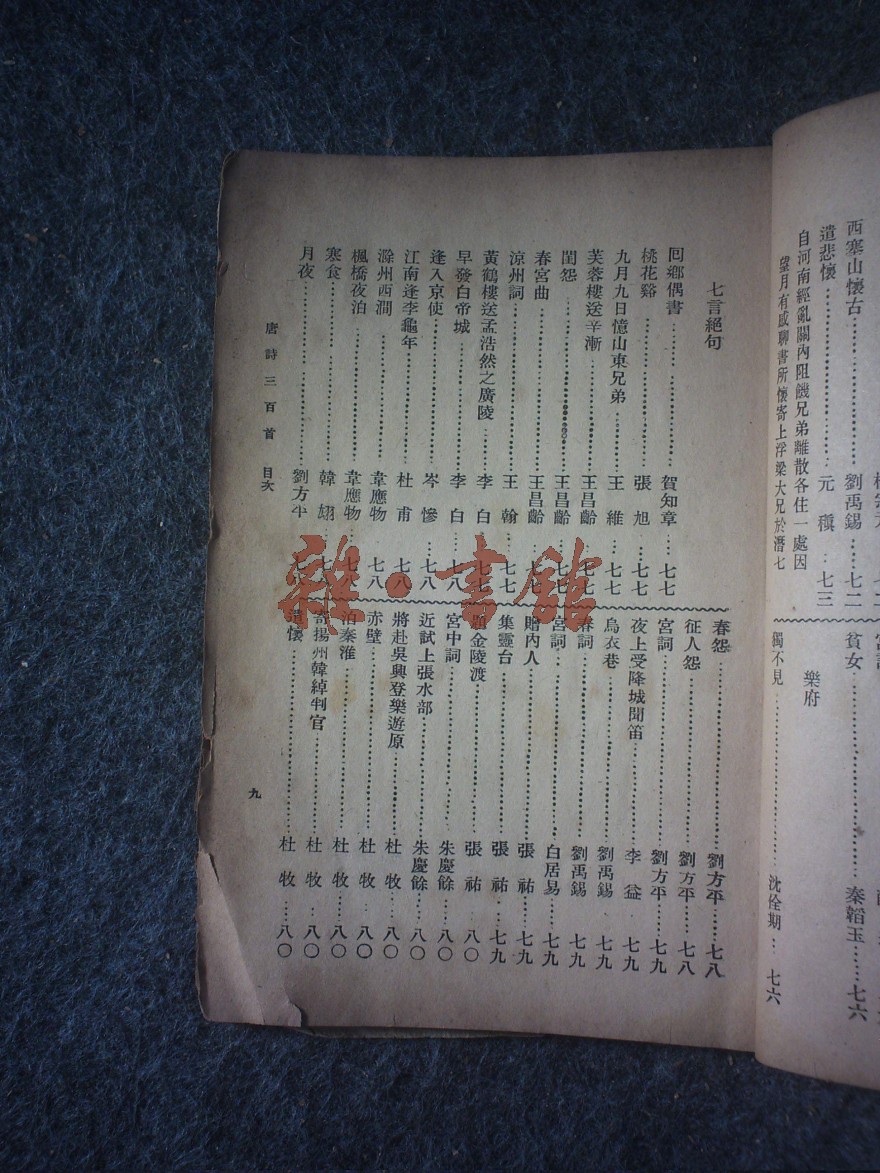 西塞山懷古 劉禹錫 七二
遣悲懷 元稹 七三
自河南經亂關內阻饑兄弟離散各住一處因
望月有感聊書所懷寄上浮梁大兄於潛七
貧女 秦韜玉 七六
樂府
獨不見 沈佺期 七六
七言絕句
回鄉偶書 賀知章 七七
桃花谿 張旭 七七
九月九日憶山東兄弟 王維 七七
芙蓉樓送辛漸 王昌齡 七七
閨怨 王昌齡 七七
春宮曲 王昌齡 七七
涼州詞 王翰 七七
黃鶴樓送孟浩然之廣陵 李白 七七
早發白帝城 李白 七八
逢入京使 岑慘 七八
江南逢李龜年 杜甫 七八
滁州西澗 韋應物 七八
楓橋夜泊 韋應物 七八
寒食 韓翃 七八
月夜 劉方平 七八
春怨 劉方平 七八
征人怨 劉方平 七八
宮詞 劉方平 七九
夜上受降城聞笛 李益 七九
烏衣巷 劉禹錫 七九
春詞 劉禹錫 七九
宮詞 白居易 七九
贈內人 張祜 七九
集靈台 張祜 七九
題金陵渡 張祜 八〇
宮中詞 朱慶餘 八〇
近試上張水部 朱慶餘 八〇
將赴吳興登樂遊原 杜牧 八〇
赤壁 杜牧 八〇
泊秦淮 杜牧 八〇
寄揚州韓綽判官 杜牧 八〇
遣懷 杜牧 八〇
唐詩三百首 目次
九
雜·書館